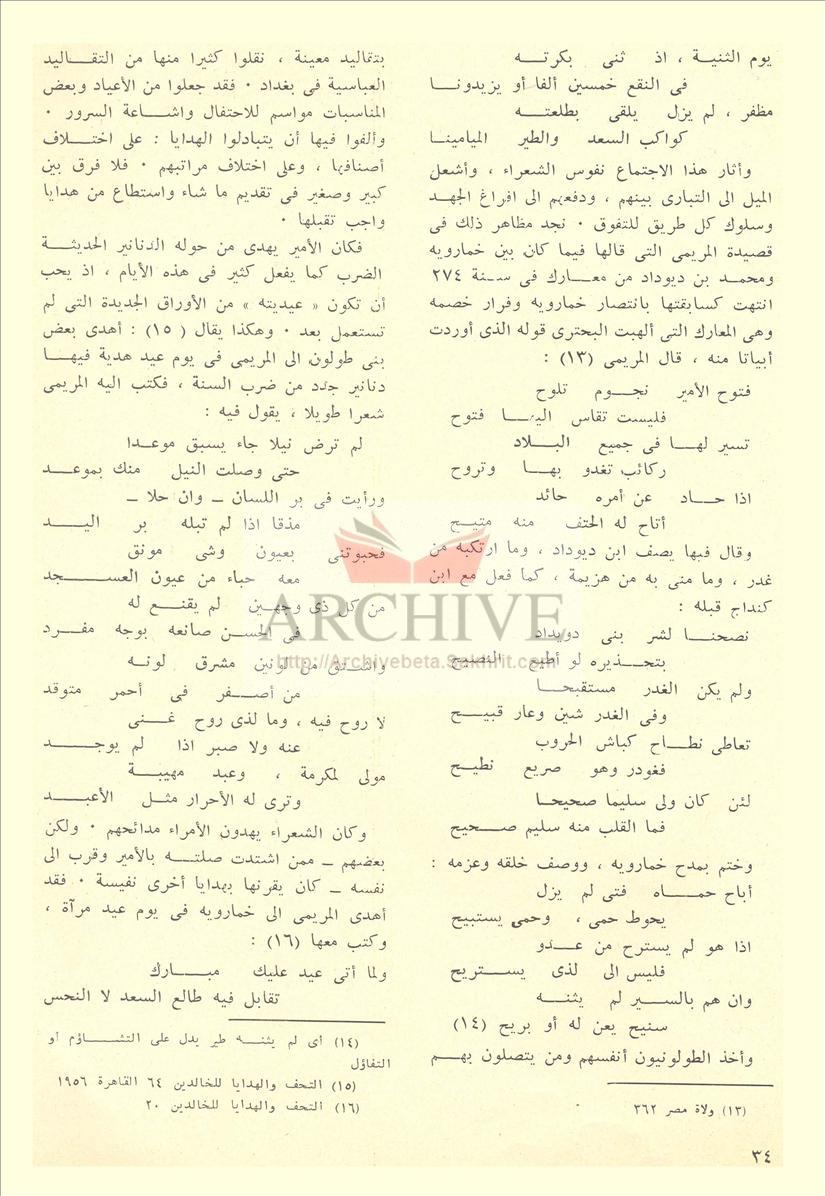 يوم الثنية ، اذ ثنى بكرته
فى النقع خمسين ألفا أو يزيدونا
مظفر ، لم يزل يلقى بطلعته
كواكب السعد والطير الميامينا
وأثار هذا الاجتماع نفوس الشعراء ، وأشعل
الميل الى التبارى بينهم ، ودفعهم الى افراغ الجهد
وسلوك كل طريق للتفوق ٠ نجد مظاهر ذلك فى
قصيدة المريمى التى قالها فيما كان بين خمارويه
ومحمد بن ديوداد من معارك فى سنة ٢٧٤
انتهت كسابقتها بانتصار خمارويه وفرار خصمه
وهى المعارك التى ألهبت البحترى قوله الذى أوردت
أبياتا منه ، قال المريمى (١٣) :
فتوح الأمير نجوم تلوح
فليست تقاس اليها فتوح
تسير لها فى جميع البلاد
ركائب تغدو بها وتروح
اذا حاد عن أمره حائد
أتاح له الحتف منه متيح
وقال فيها يصف ابن ديوداد ، وما ارتكبه من
غدر ، وما منى به من هزيمة ، كما فعل مع ابن
كنداج قبله :
نصحنا لشر بنى دويداد
بتحذيره لو أطيع النصيح
ولم يكن الغدر مستقبحا
وفى الغدر شين وعار قبيح
تعاطى نطاح كباش الحروب
فغودر وهو صريع نطيح
لئن كان ولى سليما صحيحا
فما القلب منه سليم صحيح
وختم بمدح خمارويه ، ووصف خلقه وعزمه :
أباح حماه فتى لم يزل
يحوط حمى ، وحمى يستبيح
اذا هو لم يسترح من عدو
فليس الى لذى يستريح
وان هم بالسير لم يثنه
سنيح يعن له أو بريح (١٤)
وأخذ الطولونيون أنفسهم ومن يتصلون بهم
(١٣) ولاة مصر ٣٦٢
بتقاليد معينة ، نقلوا كثيرا منها من التقاليد
العباسية فى بغداد ٠ فقد جعلوا من الأعياد وبعض
المناسبات مواسم للاحتفال واشاعة السرور ٠
وألفوا فيها أن يتبادلوا الهدايا : على اختلاف
أصنافها ، وعلى اختلاف مراتبهم ٠ فلا فرق بين
كبير وصغير فى تقديم ما شاء واستطاع من هدايا
واجب تقبلها ٠
فكان الأمير يهدى من حوله الدنانير الحديثة
الضرب كما يفعل كثير فى هذه الأيام ، اذ يحب
أن تكون « عيديته » من الأوراق الجديدة التى لم
تستعمل بعد ٠ وهكذا يقال (١٥) : أهدى بعض
بنى طولون الى المريمى فى يوم عيد هدية فيها
دنانير جدد من ضرب السنة ، فكتب اليه المريمى
شعرا طويلا ، يقول فيه :
لم ترض نيلا جاء يسبق موعدا
حتى وصلت النيل منك بموعد
ورأيت فى بر اللسان ــ وان حلا ــ
مذقا اذا لم تبله بر اليد
فحبوتنى بعيون وشى مونق
معه حباء من عيون العسجد
من كل ذى وجهين لم يقنع له
فى الحسن صانعه بوجه مفرد
واشتق من لونين مشرق لونه
من أصفر فى أحمر متوقد
لا روح فيه ، وما لذى روح غنى
عنه ولا صبر اذا لم يوجد
مولى لمكرمة ، وعبد مهيبة
وترى له الأحرار مثل الأعبد
وكان الشعراء يهدون الأمراء مدائحهم ٠ ولكن
بعضهم ــ ممن اشتدت صلته بالأمير وقرب الى
نفسه ــ كان يقرنها بهدايا أخرى نفيسة ٠ فقد
أهدى المريمى الى خمارويه فى يوم عيد مرآة ،
وكتب معها (١٦) :
ولما أتى عيد عليك مبارك
تقابل فيه طالع السعد لا النحس
(١٤) أى لم يثنه طير يدل على التشاؤم أو
التفاؤل
(١٥) التحف والهدايا للخالدين ٦٤ القاهرة ١٩٥٦
(١٦) التحف والهدايا للخالدين ٢٠
٣٤
ARCHIVE
http://Archivebeta.Sakhrit.com